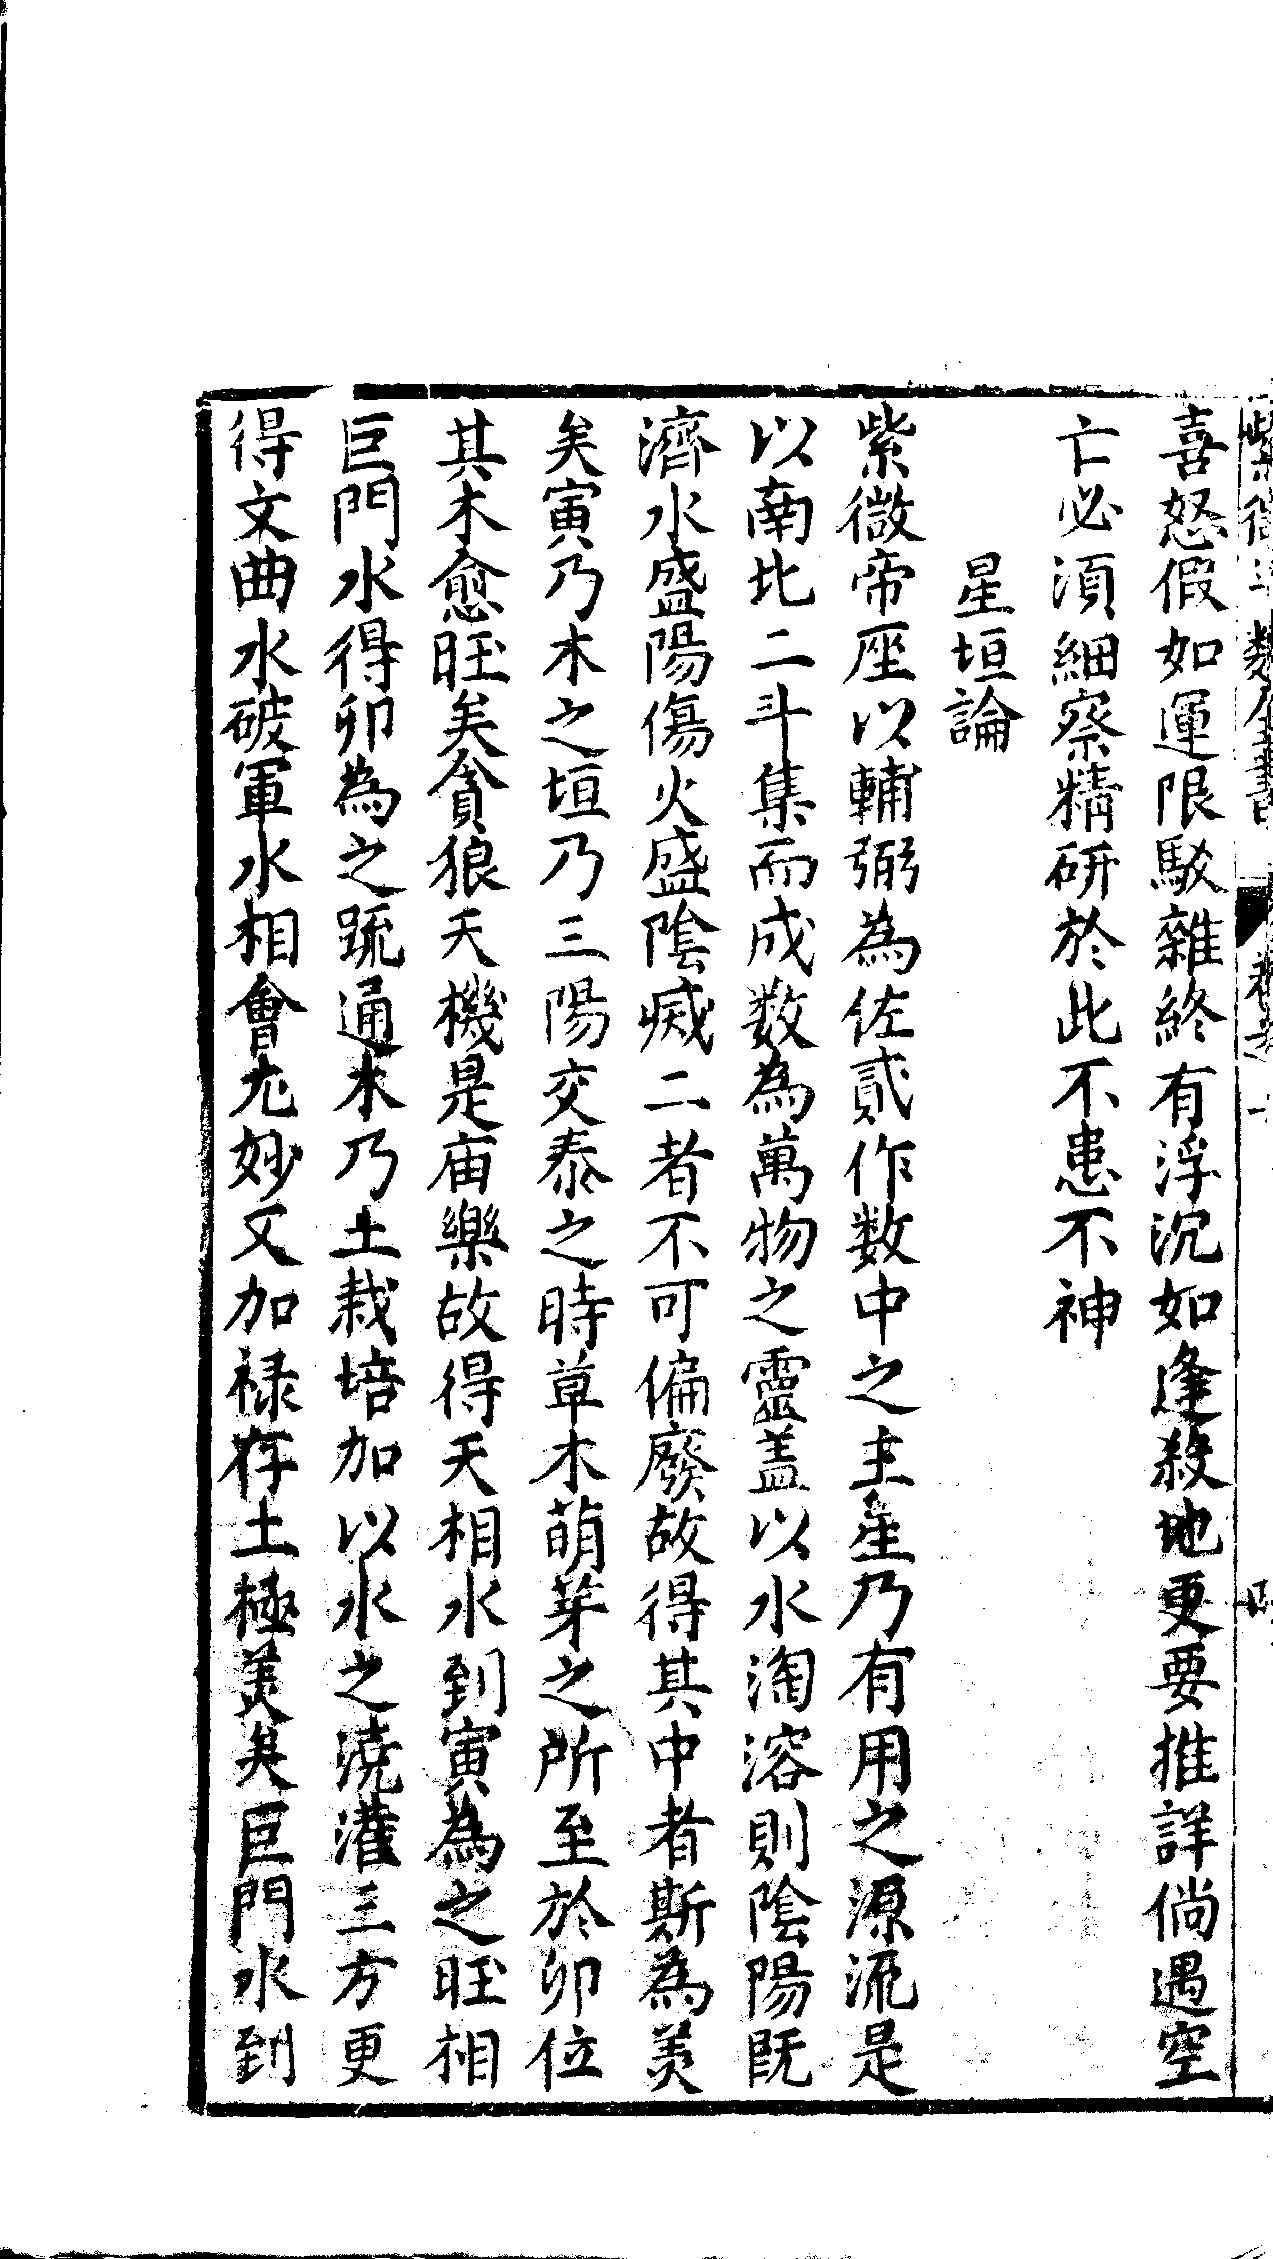 喜怒假如運限駁雜終有浮沉如逢殺地更要推詳倘遇空
亡必湏細察精研於此不患不神
星垣論
紫微帝座以輔弼為佐貳作数中之主星乃有用之源流是
以南北二斗集而成数為萬物之靈盖以水淘溶則陰陽既
濟水盛陽傷火盛陰㓕二者不可偏廢故得其中者斯為美
矣寅乃木之垣乃三陽交泰之時草木萌芽之所至於卯位
其木愈旺矣貪狼天機是庙樂故得天相水到寅為之旺相
巨門水得卯為之疏通木乃土栽培加以水之澆灌三方更
得文曲水破軍水相會尤妙又加禄存土極美矣巨門水到